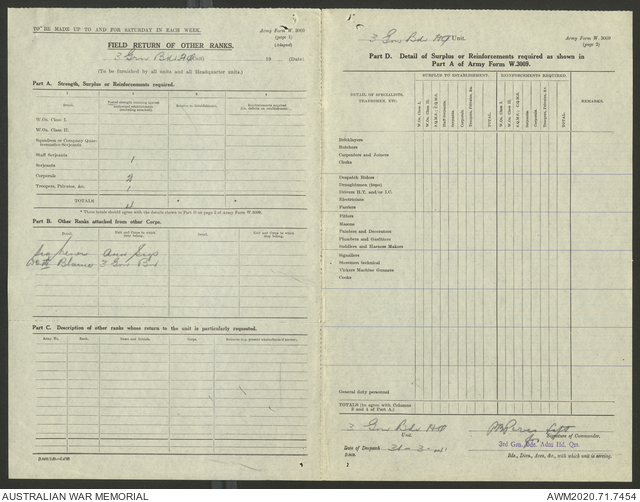 TO BE MADE UP TO AND FOR SATURDAY IN EACH WEEK.
Army Form W. 3009
(page 1)
(Adapted)
FIELD RETURN OF OTHER RANKS.
3 Grn Bde HQ (Unit) 19 (Date)
(To be furnished by all units and all Headquarter units.)
Part A. Strength, Surplus or Reinforcements required.
1 2 3 4
Detail.
Surplus to Establishment.
W.Os. Class I.
W.Os. Class II.
Squadron or Company Quar-
termaster-Serjeants
Staff Serjeants
1
Serjeants
Corporals 2
Troopers, Privates, &c. 1
TOTALS 4
* These totals should agree with the details shown in Part D on page 2 of Army Form W.3009.
Part B. Other Ranks attached from other Corps.
Detail. Unit and Corps to which they belong. Detail. Unit and Corps to which they belong.
Sigs
3 Grn Bn
Part C. Description of other ranks whose return to the unit is particularly requested.
Army No. Rank. Name and Initials. Corps.
3 Grn Bde HQ Unit.
Army Form W. 3009
(page 2)
Part D. Detail of Surplus or Reinforcements required as shown in
Part A of Army Form W.3009.
DETAIL OF SPECIALISTS, TRADESMEN, ETC.
SURPLUS TO ESTABLISHMENT.
REINFORCEMENTS REQUIRED.
REMARKS.
W.Os. Class I. W.Os. Class II. S.Q.M.S.; C.Q.M.S. Staff-Serjeants. Serjeants. Corporals. Troopers, Privates, &c. TOTAL.
W.Os. Class I. W.Os. Class II. S.Q.M.S.; C.Q.M.S. Serjeants. Corporals. Troopers, Privates, &c. TOTAL.
Bricklayers
Butchers
Carpenters and Joiners
Clerks
Despatch Riders
Draughtsmen (topo)
Drivers H.T. and/or I.C.
Electricians
Farriers
Fitters
Masons
Painters and Decorators
Plumbers and Gasfitters
Saddlers and Harness Makers
Signallers
Storemen technical
Vickers Machine Gunners
Cooks
General duty personnel
TOTALS (to agree with Columns
3 and 4 of Part A.)
3 Grn Bde HQ
Unit.
Capt
Signature of Commander.
3rd Grn. Bde. Adm. Hd. Qrs.
Date of Despatch 21-3-
Bde., Divn., Area, &c., with which unit is serving.
AUSTRALIAN WAR MEMORIAL
AWM2020.71.7454